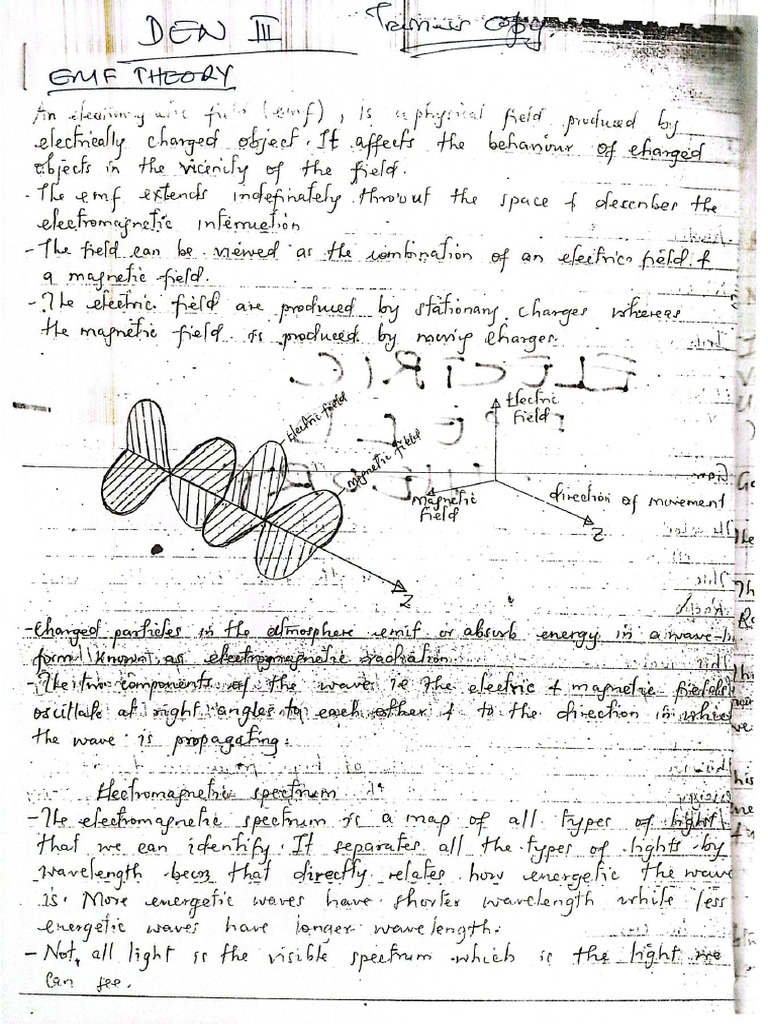 DEN III Trainers copy.
EMF THEORY
An electromagnetic field (emf), is a physical field produced by
electrically charged object. It affects the behaviour of charged
objects in the vicinity of the field.
- The emf extends indefinately throout the space & describes the
electromagnetic interruction
- The field can be viewed as the combination of an electric field &
a magnetic field.
- The electric field are produced by stationary charges whereas
the magnetic field is produced by moving charges.
ELECTRIC
Electric
field
Electric field
magnetic field
Magnetic
field
direction of movement
Z
Z
- Charged particles in the atmosphere emit or absorb energy in a wave-li
form known as electromagnetic radiation.
- The two components of the wave ie the electric & magnetic fields
oscillate at right angles to each other & to the direction in which
the wave is propagating.
Electromagnetic spectrum
- The electromagnetic spectrum is a map of all types of light
that we can identify. It separates all the types of lights by
wavelength becoz that directly relates how energetic the wave
is. More energetic waves have shorter wavelength while less
energetic waves have longer wavelength.
- Not all light is the visible spectrum which is the light we
can see.